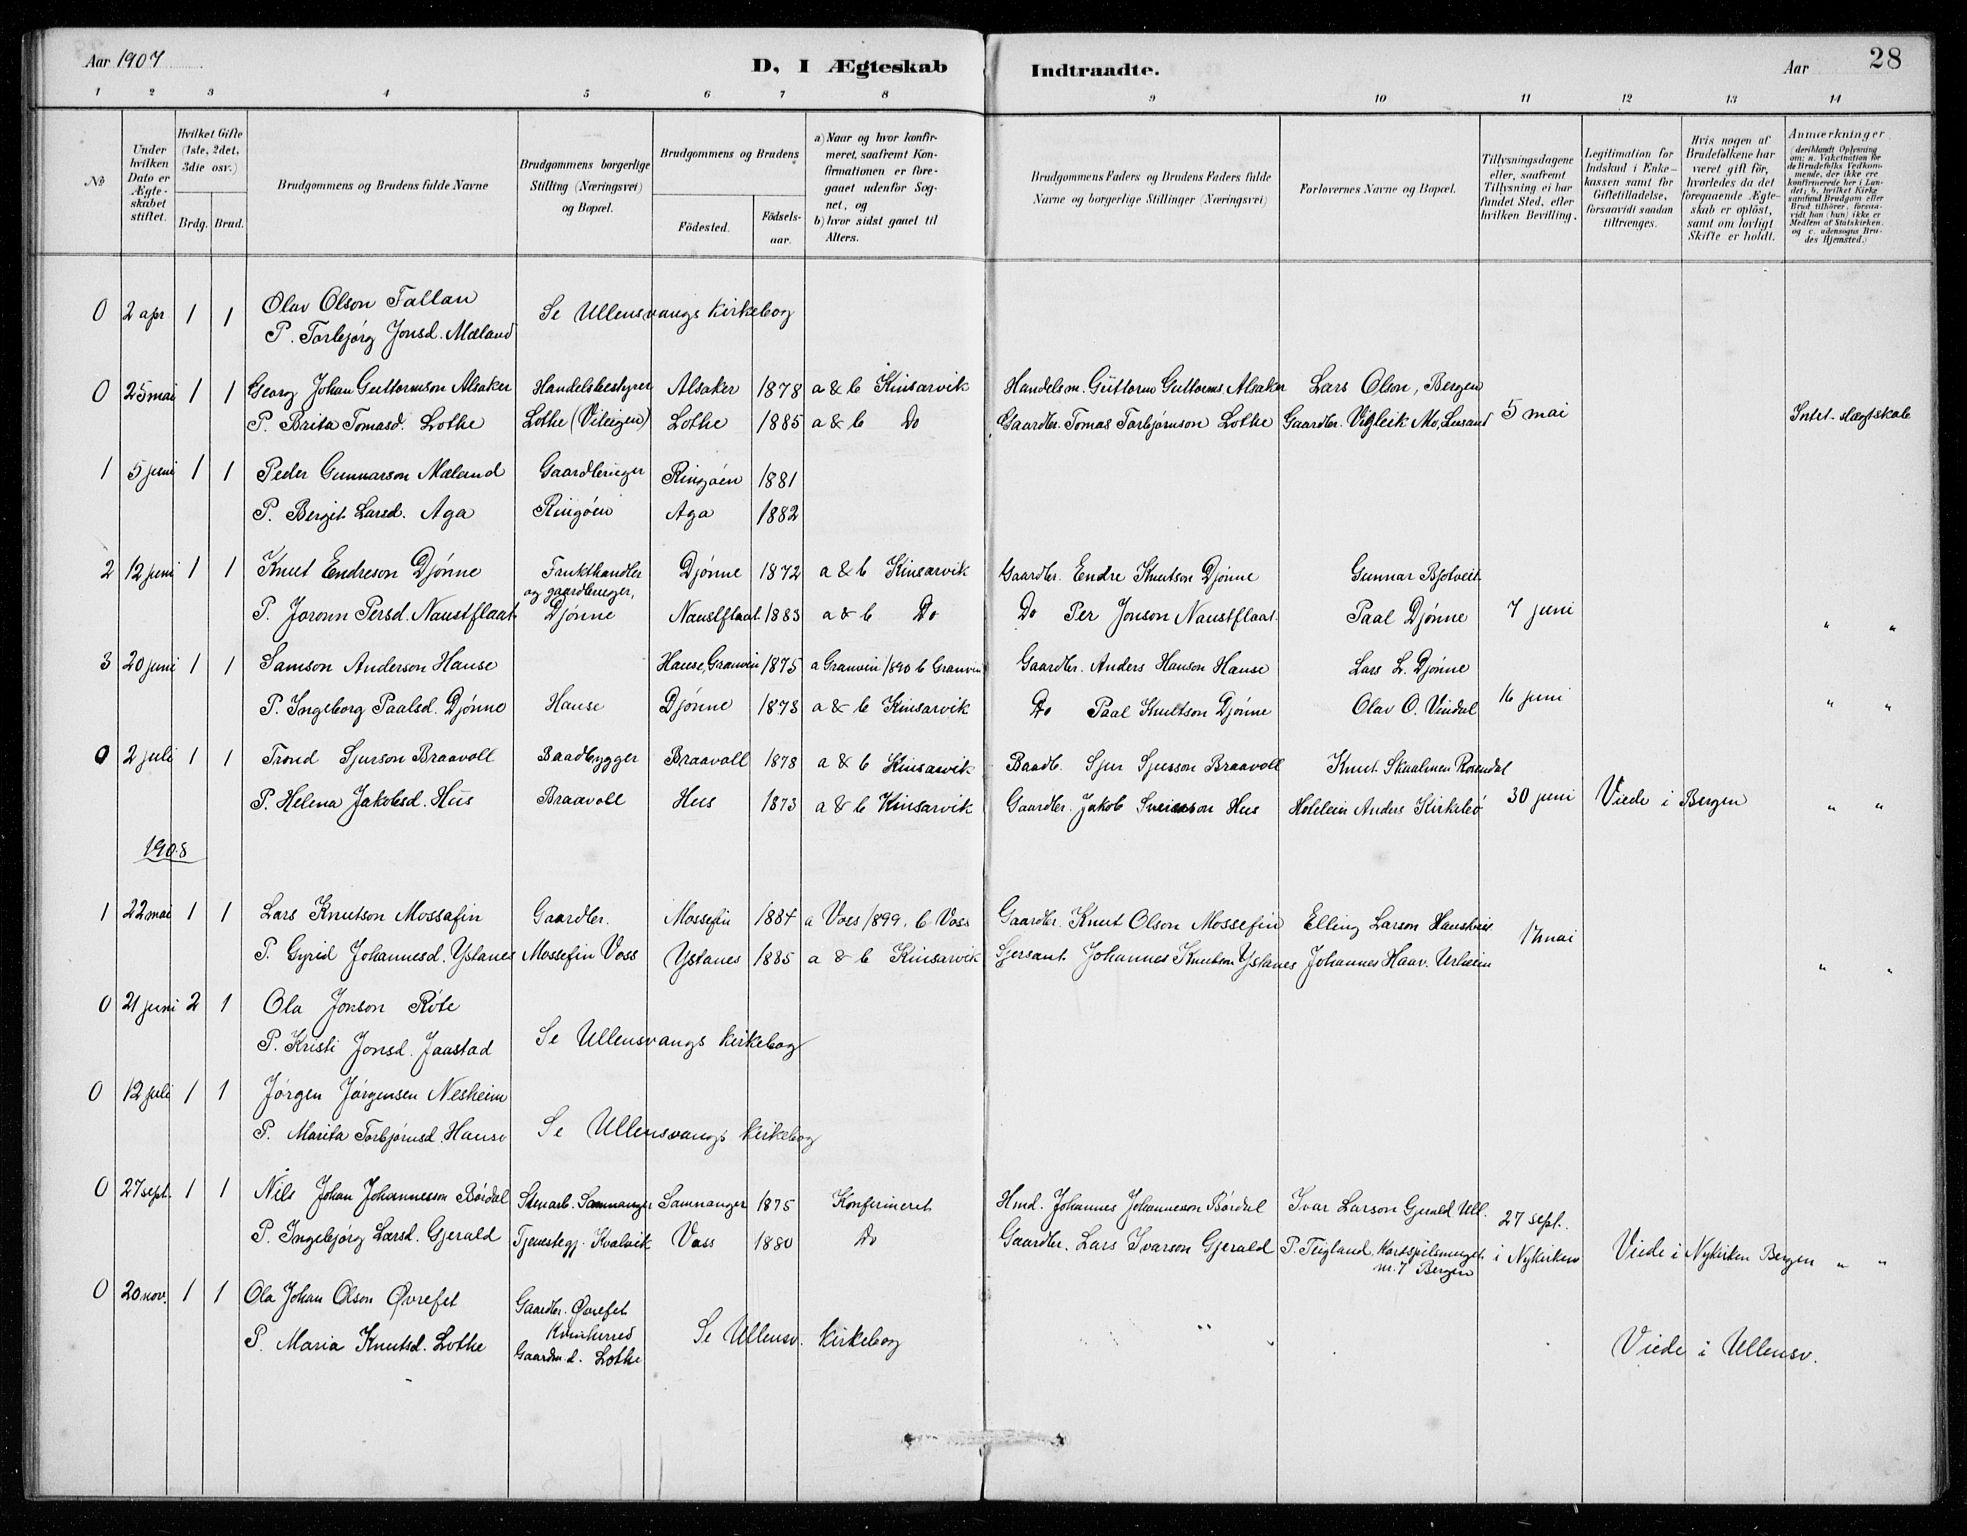 Aar 1907
D, I Ægteskab
Indtraadte.
Aar
28
1 2 3 4 5 6 7 8 9 10 11 12 13 14
No
Under hvilken Dato er Ægteskabet stiftet.
Hvilket Gifte (1ste, 2det, 3die osv.)
Brdg. Brud.
Brudgommens og Brudens fulde Navne
Brudgommens borgerlige Stilling (Næringsvei) og Bopæl.
Brudgommens og Brudens
Födested. Födselsaar.
a) Naar og hvor konfirmeret, saafremt Konfirmationen er foregaaet udenfor Sognet, og
b) hvor sidst gaaet til Alters.
Brudgommens Faders og Brudens Faders fulde Navne og borgerlige Stillinger (Næringsvei)
Forlovernes Navne og Bopæl.
Tillysningsdagene eller, saafremt Tillysning ei har fundet Sted, efter hvilken Bevilling.
Legitimation for Indskud i Enkekassen samt for Giftetilladelse, forsaavidt saadan tiltrænges.
Hvis nogen af Brudefolkene har været gift før, hvorledes da det foregaaende Ægteskab er oplöst, samt om lovligt Skifte er holdt.
Anmærkninger (deriblandt Oplysning om: a. Vakcination for de Brudefolks Vedkommende, der ikke ere konfirmerede her i Landet; b. hvilket Kirkesamfund Brudgom eller Brud tilhörer, forsaavidt han (hun) ikke er Medlem af Statskirken, og c. udensogns Brudes Hjemsted.)
0 2 apr 1 1 Olav Olson Tallan Se Ullensvangs Kirkebog
P. Torbjørg Jonsd. Mæland
0 25 mai 1 1 Georg Johan Guttormson Alsaker Handelsbestyrer Alsaker 1878 a & b Kinsarvik Handelsm. Guttorm Guttorms. Alsaker Lars Olson, Bergen
P. Brita Tomasd. Lothe Lothe Lothe 1885 a & b Do Gaardbr. Tomas Torbjørnson Lothe Gaardbr. Vigleik Mo, 5 mai Intet slægtskab
1 5 juni 1 1 Peder Gunnarson Mæland Gaardbruger Ringøen 1881
P. Bergit Larsd. Aga Ringøen Aga 1882
2 12 juni 1 1 Knut Endreson Djønne Frukthandler og gaardbruger, Djønne 1872 a & b Kinsarvik Gaardbr. Endre Knutson Djønne Gunnar Bjotveit
P. Joronn Persd. Naustflaat Djønne Naustflaat 1883 a & b Do Do Per Jonson Naustflaat Paal Djønne 7 juni " "
3 20 juni 1 1 Samson Anderson Hause Hause, Granvin 1875 a Granvin 1890 b Granvin Gaardbr. Anders Hanson Hause Lars L. Djønne
P. Ingeborg Paalsd. Djønne Hause Djønne 1873 a & b Kinsarvik Do Paal Knutson Djønne Olav O. Vindal 16 juni " "
0 2 juli 1 1 Trond Sjurson Braavoll Baadbygger Braavoll 1878 a & b Kinsarvik Baadb. Sjur Sjurson Braavoll Knut Skaalnen Rosendal
P. Helena Jakobsd. Hus Braavoll Hus 1873 a & b Kinsarvik Gaardbr. Jakob Sveinson Hus Anders Kirkebø 30 juni Viede i Bergen " "
1908
1 22 mai 1 1 Lars Knutson Mossafin Gaardbr. Mossefin 1884 a Voss 1899. b Voss Gaardbr. Knut Olson Mossefin Elling Larson
P. Gyrid Johannesd. Ystanes Mossefin Voss Ystanes 1885 a & b Kinsarvik Sjersant Johannes Knutson Ystanes Johannes Haav. Urheim 17 mai " "
0 21 juni 2 1 Ola Jonson Røte
P. Kristi Jonsd. Jaastad Se Ullensvangs Kirkebog
0 12 juli 1 1 Jørgen Jørgensen Nesheim
P. Marita Torbjørnsd. Hause Se Ullensvangs Kirkebog
0 27 sept. 1 1 Nils Johan Johannesson Børdal Stenarb. Samnanger Samnanger 1875 Konfirmeret Hmd. Johannes Johanneson Børdal Ivar Larson Gjerald Ull.
P. Ingebjørg Larsd. Gjerald Tjenestegj. Kvalvik Voss 1880 Do Gaardbr. Lars Ivarson Gjerald P. Teigland, Bergen 27 sept. i Nykirken Viede i Nykirken Bergen " "
0 20 nov. 1 1 Ola Johan Olson Øvrefet Gaardbr. Øvrefet Kvinherred
P. Maria Knutsd. Lothe Gaardm.d. Lothe Se Ullensv. Kirkebog " Viede i Ullensv.